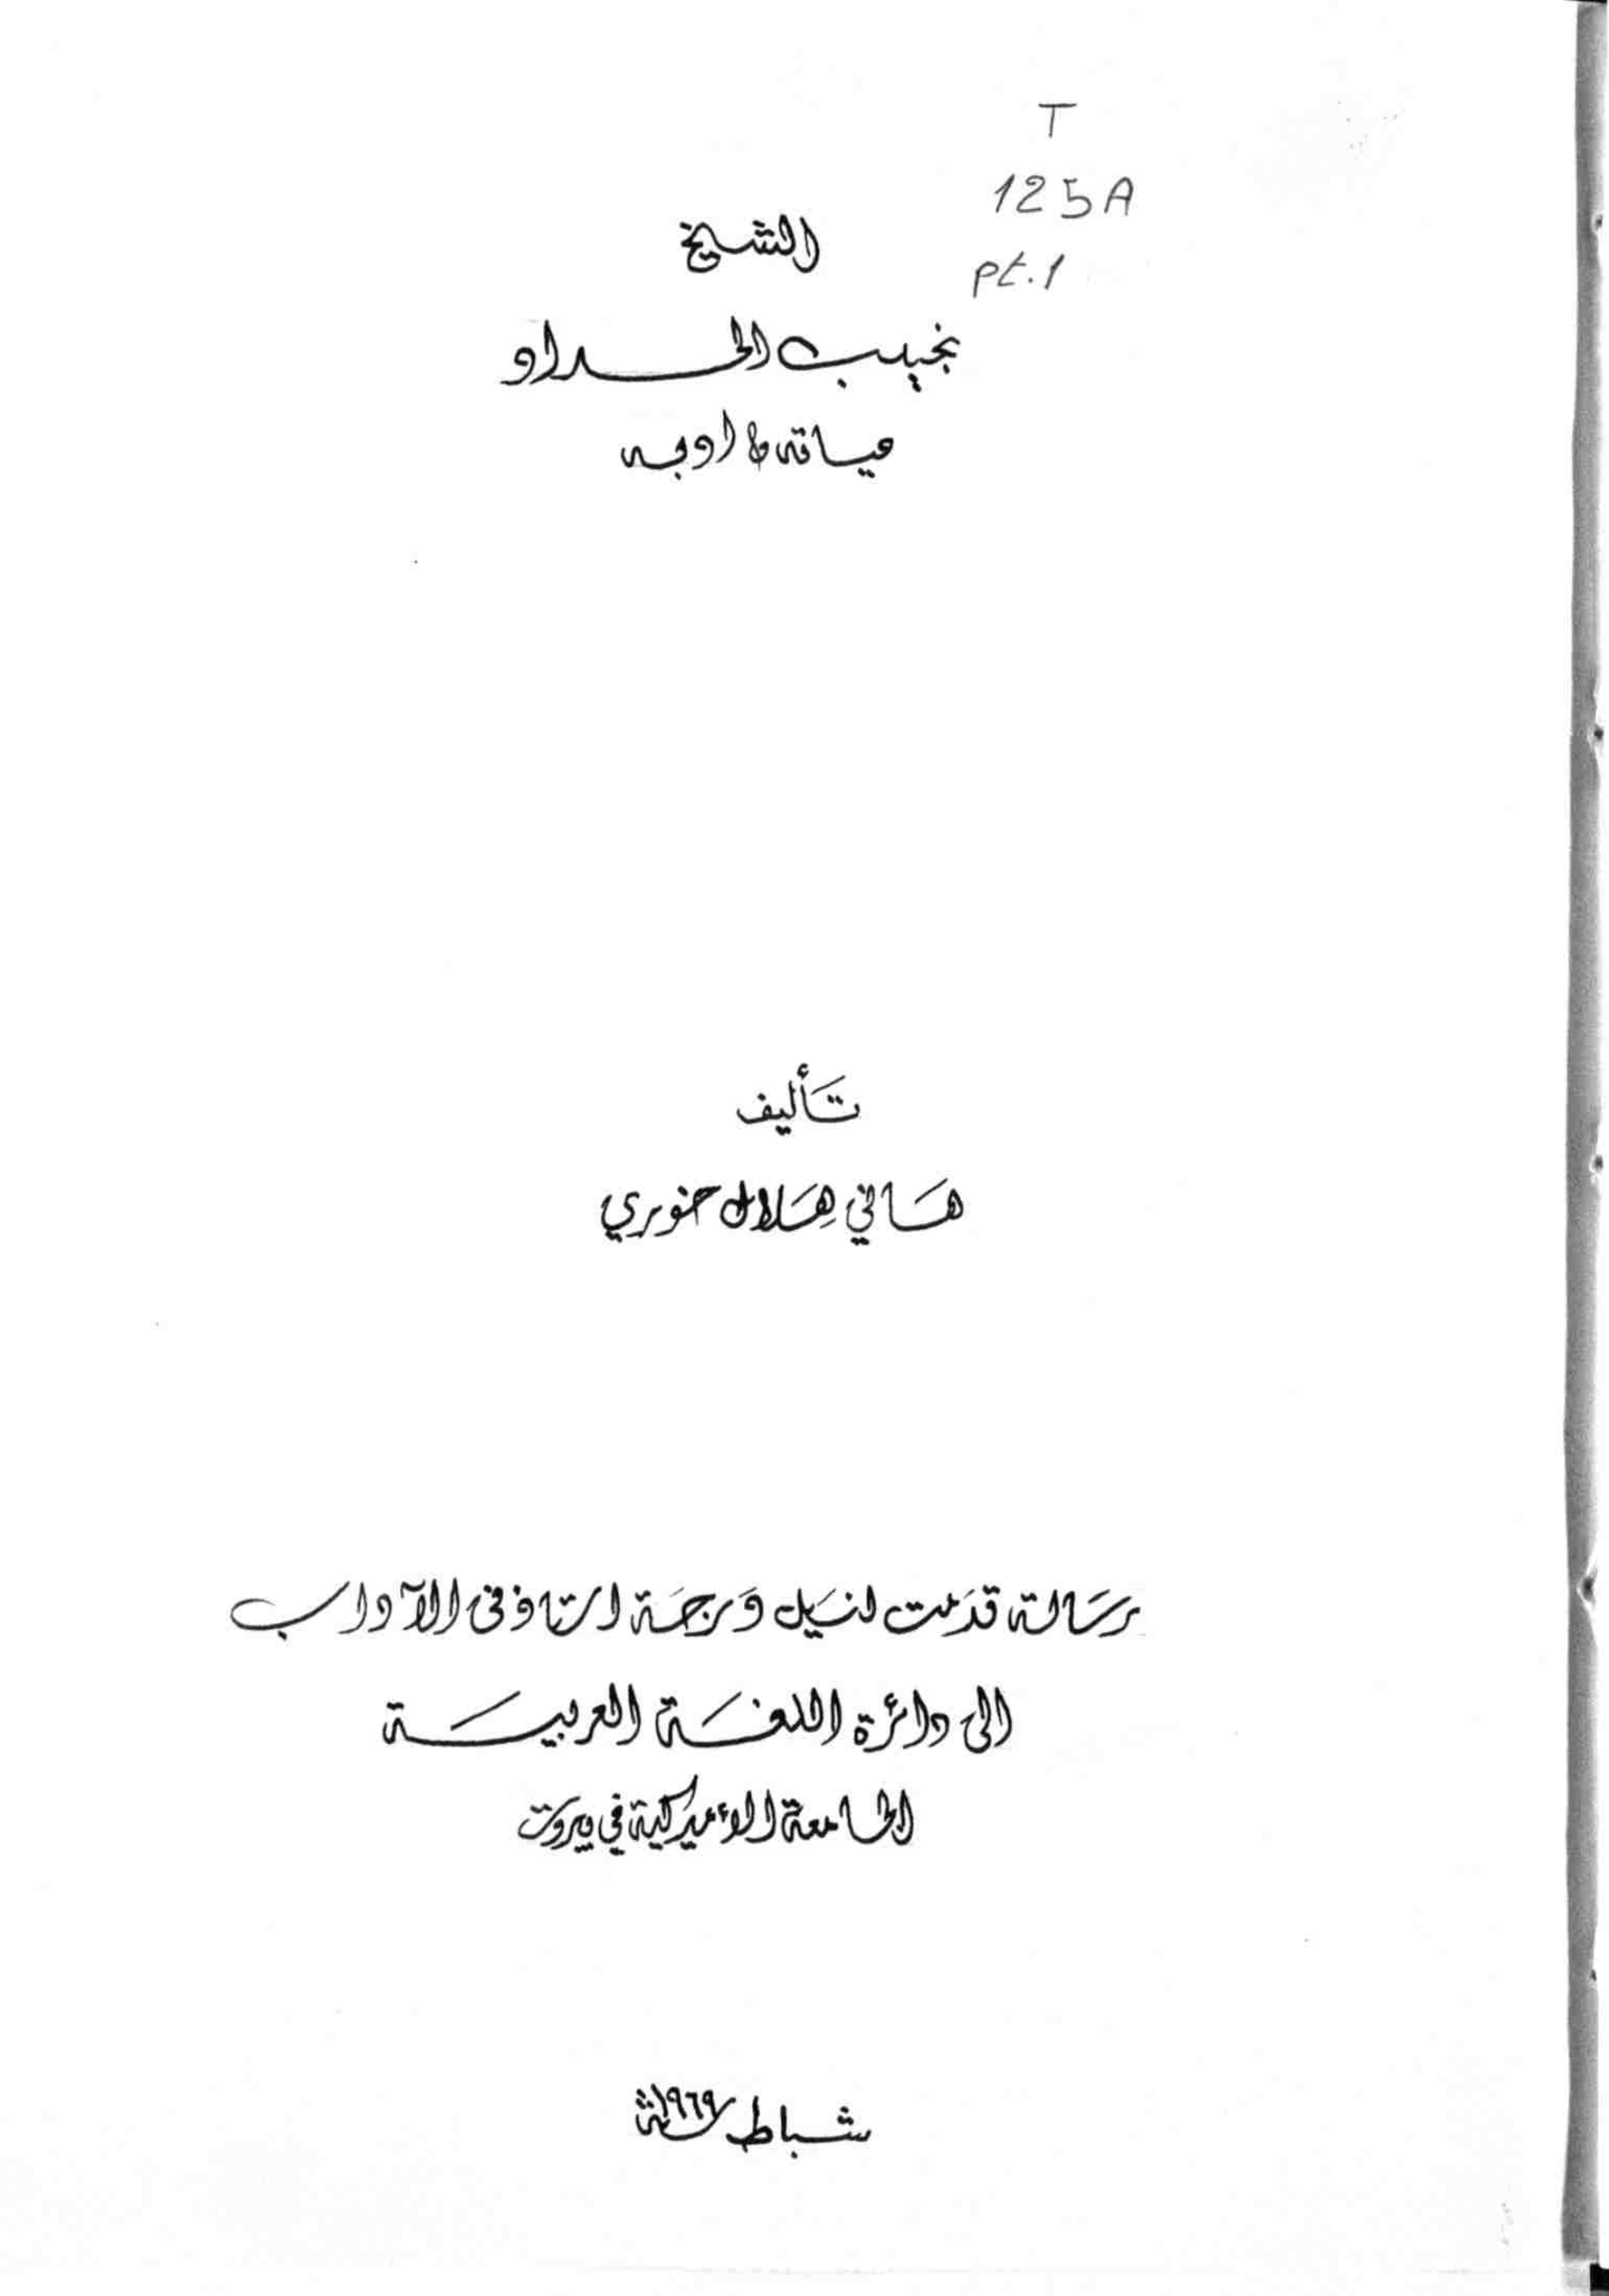 T
125A
pt.1
الشيخ
نجيب الحداد
حياته وادبه
تأليف
هَاني هِلال خوري
رسَالة قدمَت لنيَل دَرجَة استاذ في الآداب
الى دائرة اللغَة العربيَة
الجامعة الأميركية في بيروت
شباط سنة ١٩٦٩